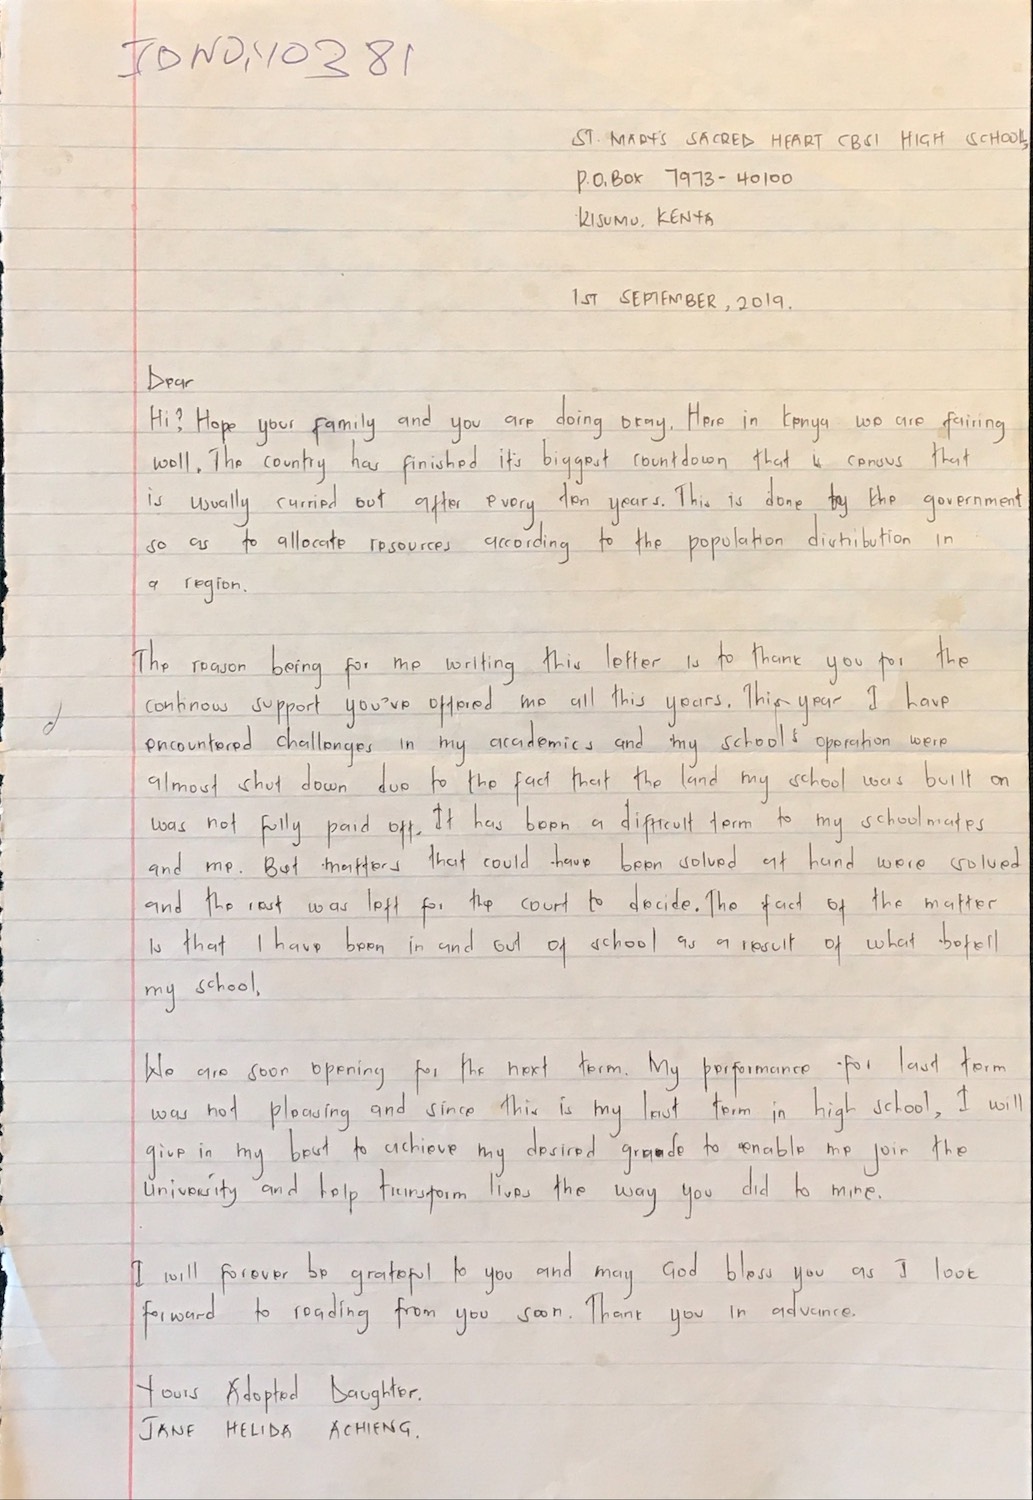 IDNO; 10381
ST. MARY'S SACRED HEART CBSI HIGH SCHOOL,
P.O. BOX 7973 - 40100
KISUMU, KENYA
1ST SEPTEMBER, 2019.
Dear
Hi? Hope your family and you are doing okay. Here in Kenya we are fairing
well. The country has finished it's biggest countdown that is census that
is usually carried out after every ten years. This is done by the government
so as to allocate resources according to the population distribution in
a region.
The reason being for me writing this letter is to thank you for the
continous support you've offered me all this years. This year I have
encountered challenges in my academics and my school's operation were
almost shut down due to the fact that the land my school was built on
was not fully paid off. It has been a difficult term to my schoolmates
and me. But matters that could have been solved at hand were solved
and the rest was left for the court to decide. The fact of the matter
is that I have been in and out of school as a result of what befell
my school.
We are soon opening for the next term. My performance for last term
was not pleasing and since this is my last term in high school, I will
give in my best to achieve my desired grande to enable me join the
University and help transform lives the way you did to mine.
I will forever be grateful to you and may God bless you as I look
forward to reading from you soon. Thank you in advance.
Yours Adopted Daughter.
JANE HELIDA ACHIENG.